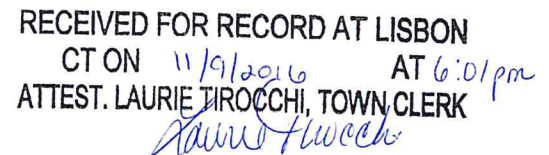 RECEIVED FOR RECORD AT LISBON
CT ON 11/9/2016 AT 6:01pm
ATTEST. LAURIE TIROCCHI, TOWN CLERK
Laurie Tirocchi